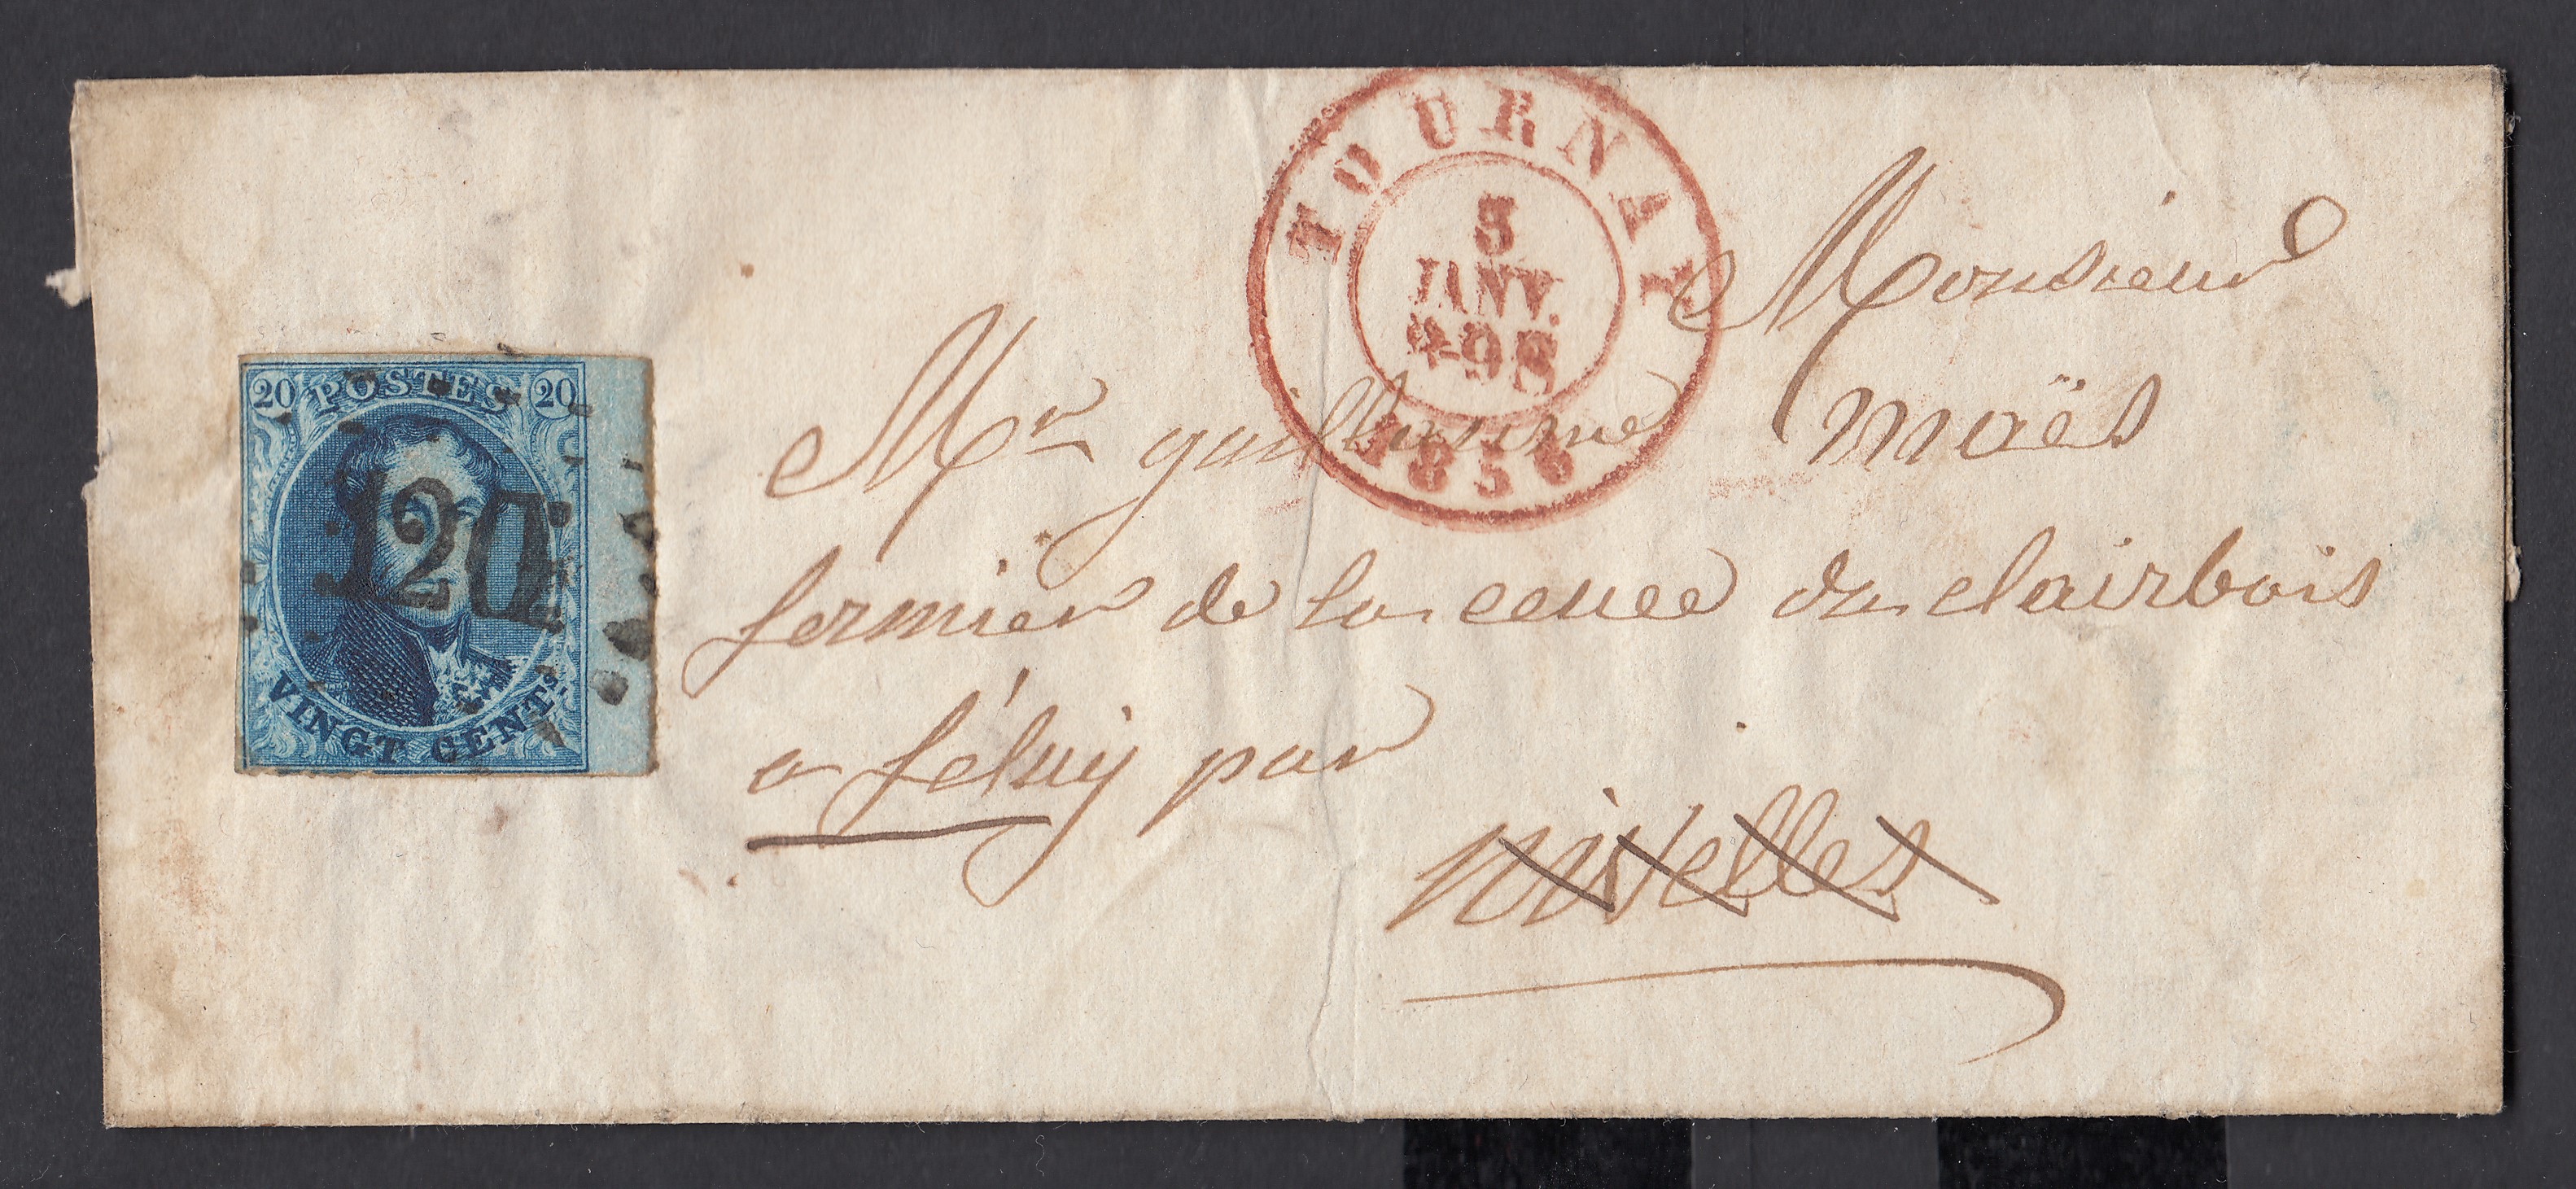 20 POSTES 20
120
VINGT CENTS.
TOURNAY
JANV.
1856
Monsieur
Mr guillaume maës
fermier de la cence du clairbois
a féluy par
nivelles